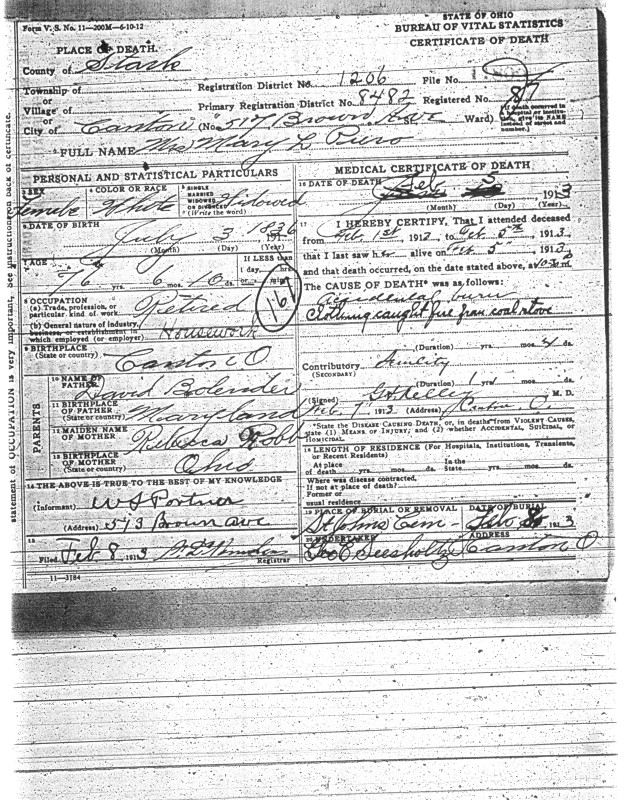 Form V. S. No. 11—200M—6-10-12
STATE OF OHIO
BUREAU OF VITAL STATISTICS
CERTIFICATE OF DEATH
PLACE OF DEATH.
County of Stark
Township of
or
Village of
or
City of Canton
Registration District No. 1206 File No.
Primary Registration District No. 8482 Registered No. 87
(No. Brown Ave Ward)
(If death occurred in a hospital or institution, give its NAME instead of street and number.)
FULL NAME Mrs Mary L
PERSONAL AND STATISTICAL PARTICULARS
SEX Female
4 COLOR OR RACE White
5 SINGLE MARRIED WIDOWED OR DIVORCED (Write the word) Widowed
6 DATE OF BIRTH July 3 1836
(Month) (Day) (Year)
7 AGE 76 yrs. 6 mos. ds.
If LESS than 1 day, hrs. or min?
167
8 OCCUPATION
(a) Trade, profession, or particular kind of work Retired
(b) General nature of industry, business, or establishment in which employed (or employer) Housework
9 BIRTHPLACE (State or country) Canton O
PARENTS
10 NAME OF FATHER David Bolender
11 BIRTHPLACE OF FATHER (State or country) Maryland
12 MAIDEN NAME OF MOTHER Rebecca Robb
13 BIRTHPLACE OF MOTHER (State or country) Ohio
14 THE ABOVE IS TRUE TO THE BEST OF MY KNOWLEDGE
(Informant) W S Portner
(Address) 513 Brown Ave
15
Filed Feb 8 1913
Registrar
11—3184
MEDICAL CERTIFICATE OF DEATH
16 DATE OF DEATH Feb 5 1913
(Month) (Day) (Year)
17 I HEREBY CERTIFY, That I attended deceased
from Feb 1st, 1913, to Feb 5th, 1913,
that I last saw h alive on Feb 5, 1913,
and that death occurred, on the date stated above, at m
The CAUSE OF DEATH* was as follows:
Accidental burn
Clothing caught fire from coal stove
(Duration) yrs. mos. 4 ds.
Contributory
(SECONDARY)
(Duration) 1 yrs. mos. ds.
(Signed) Kelley M. D.
Feb 7, 1913 (Address) Canton O
*State the DISEASE CAUSING DEATH, or, in deaths from VIOLENT CAUSES, state (1) MEANS OF INJURY; and (2) whether ACCIDENTAL, SUICIDAL, or HOMICIDAL.
18 LENGTH OF RESIDENCE (For Hospitals, Institutions, Transients, or Recent Residents)
At place of death yrs. mos. ds. In the State yrs. mos. ds.
Where was disease contracted, If not at place of death?
Former or usual residence
19 PLACE OF BURIAL OR REMOVAL St Johns Cem
DATE OF BURIAL Feb 8 1913
20 UNDERTAKER Geo C Seesholtz
ADDRESS Canton O
statement of OCCUPATION is very important. See instructions on back of certificate.